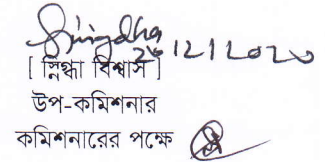 Snigdha
26/12/2020
[ স্নিগ্ধা বিশ্বাস ]
উপ-কমিশনার
কমিশনারের পক্ষে